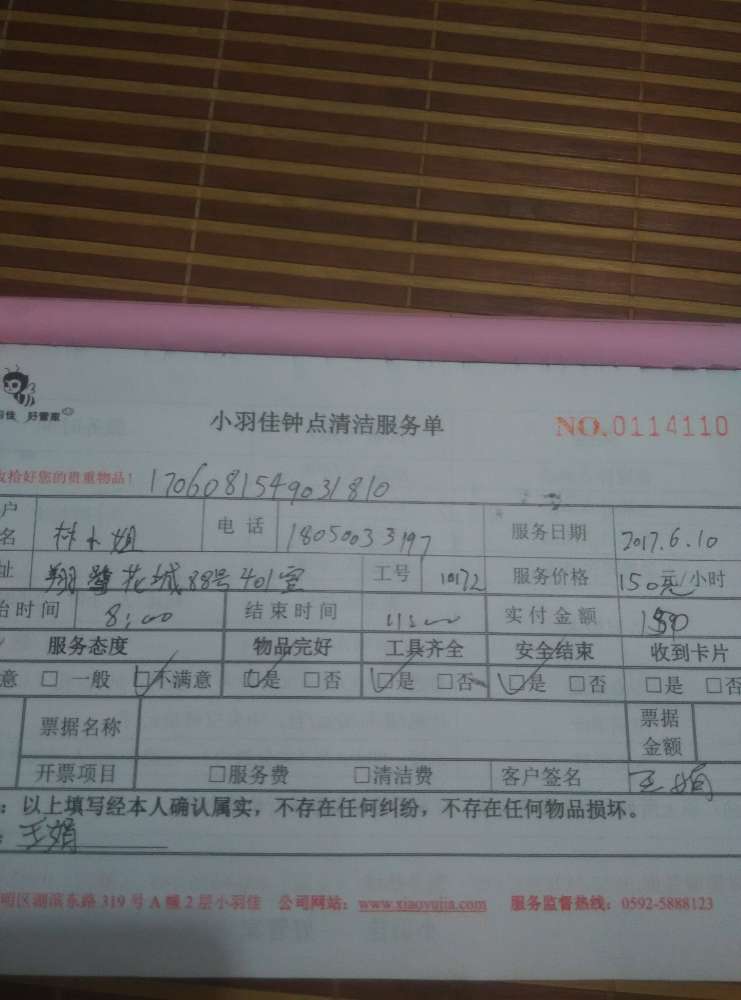 羽佳 好管家
小羽佳钟点清洁服务单 NO.0114110
收拾好您的贵重物品! 1706081549031810
户名 林小姐 电话 18050033197 服务日期 2017.6.10
址 翔鹭花城88号401室 工号 10172 服务价格 150元/小时
始时间 8:00 结束时间 11:00 实付金额
服务态度 物品完好 工具齐全 安全结束 收到卡片
意 □一般 □不满意 □是 □否 □是 □否 □是 □否 □是 □否
票据名称 票据金额
开票项目 □服务费 □清洁费 客户签名 王娟
:以上填写经本人确认属实,不存在任何纠纷,不存在任何物品损坏。
: 王娟
明区湖滨东路319号A幢2层小羽佳 公司网站:www.xiaoyujia.com 服务监督热线:0592-5888123